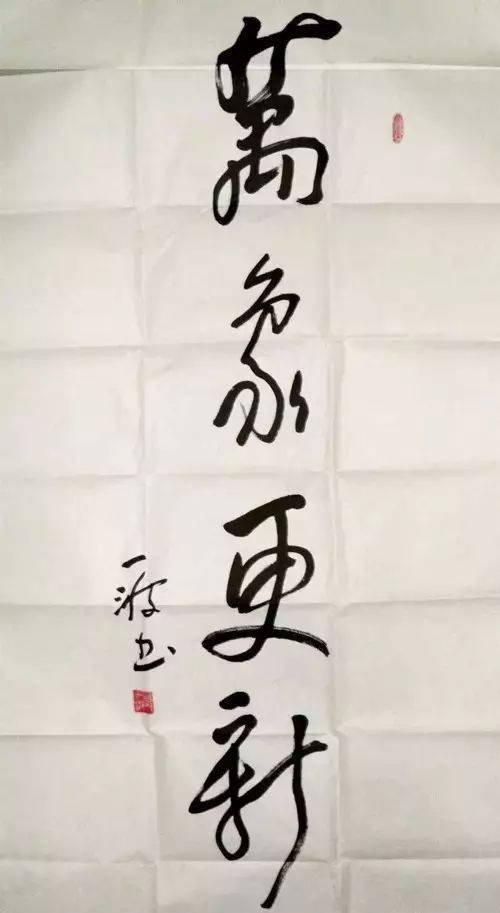 萬象更新
一波书